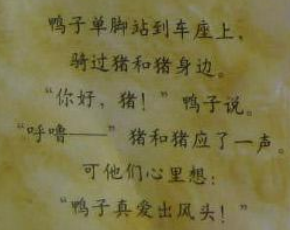 鸭子单脚站到车座上，
骑过猪和猪身边。
“你好，猪！”鸭子说。
“呼噜——”猪和猪应了一声。
可他们心里想：
“鸭子真爱出风头！”